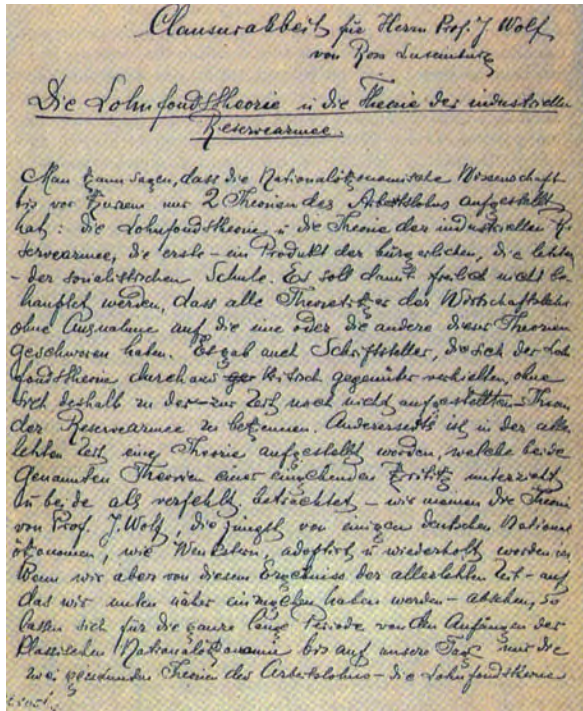 Clausurarbeit für Herrn Prof. J. Wolf
von Rosa Luxemburg
Die Lohnfondstheorie u die Theorie der industriellen
Reservearmee.
Man kann sagen, dass die Nationalökonomische Wissenschaft
bis vor Kurzem nur 2 Theorien des Arbeitslohns aufgestellt
hat: die Lohnfondstheorie u die Theorie der industriellen Re-
servearmee, die erste - ein Produkt der bürgerlichen, die letzte
- der sozialistischen Schule. Es soll damit freilich nicht be-
hauptet werden, dass alle Theoretiker der Wirtschaftslehre
ohne Ausnahme auf die eine oder die andere dieser Theorien
geschworen haben. Es gab auch Schriftsteller, die sich der Loh
fondstheorie durchaus kritisch gegenüber verhielten, ohne
sich deshalb zu der - zur Zeit noch nicht aufgestellten - Theorie
der Reservearmee zu bekennen. Andererseits ist in der aller
letzten Zeit eine Theorie aufgestellt worden, welche beide
genannten Theorien einer eingehenden Kritik unterzieht
u beide als verfehlt betrachtet - wir meinen die Theorie
von Prof. J. Wolf, die jüngst von einigen deutschen National
ökonomen, wie Wenckstern, adoptirt u wiederholt worden ist.
Wenn wir aber von diesem Ergebniss der allerletzten Zeit - auf
das wir unten näher einzugehen haben werden - absehen, so
lassen sich für die ganze lange Periode von den Anfängen der
Klassischen Nationalökonomie bis auf unsere Tage nur die
zwei genannten Theorien des Arbeitslohns - die Lohnfondstheorie